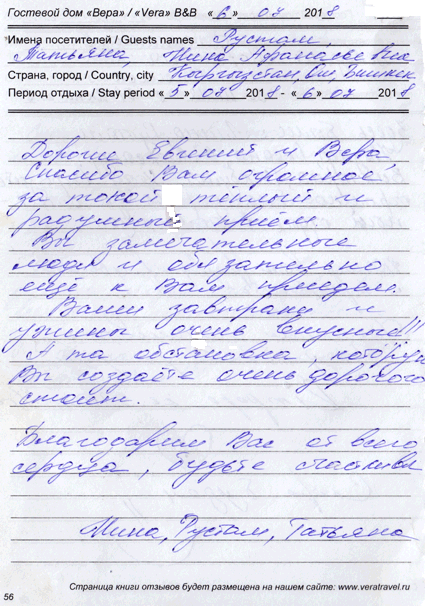 Гостевой дом «Вера» / «Vera» B&B « 6 » 07 2018
Имена посетителей / Guests names Рустам,
Татьяна, Нина Афанасьевна
Страна, город / Country, city Кыргызстан, Ош, Бишкек
Период отдыха / Stay period « 5 » 07 2018 - « 6 » 07 2018
Дорогие Евгений и Вера,
Спасибо Вам огромное
за такой тёплый и
радушный приём.
Вы замечательные
люди и обязательно
ещё к Вам приедем.
Ваши завтраки и
ужины очень вкусные!!!
А та обстановка, которую
Вы создаёте очень дорогого
стоит.
Благодарим Вас от всего
сердца, будьте счастливы
Нина, Рустам, Татьяна
Страница книги отзывов будет размещена на нашем сайте: www.veratravel.ru
56